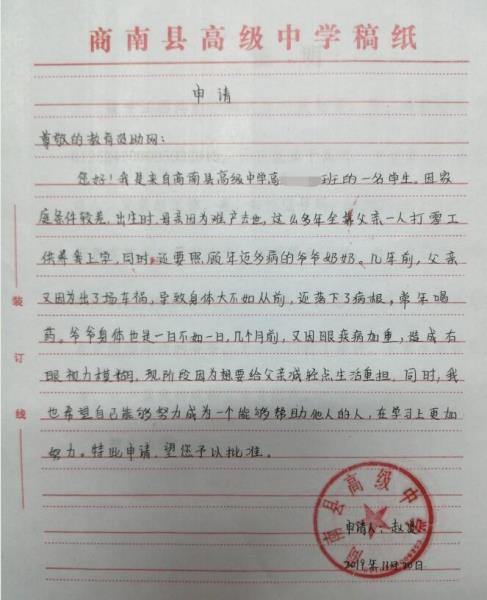 商南县高级中学稿纸
申请
尊敬的教育资助网:
您好!我是来自商南县高级中学高 班的一名学生。因家
庭条件较差,出生时,母亲因为难产去世,这么多年全靠父亲一人打零工
供养我上学,同时,还要照顾年迈多病的爷爷奶奶。几年前,父亲
又因为出了场车祸,导致身体大不如从前,还落下了病根。常年喝
药。爷爷身体也是一日不如一日,几个月前,又因眼疾病加重,造成右
眼视力模糊,现阶段因为想要给父亲减轻点生活重担,同时,我
也希望自己能够努力成为一个能够帮助他人的人,在学习上更加
努力。特此申请,望您予以批准。
装
订
线
商南县高级中学
申请人:赵
2019年11月20日